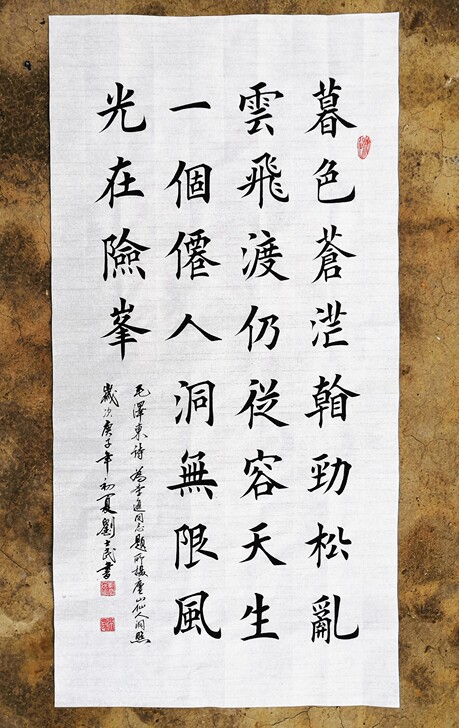 暮色蒼茫翰勁松亂
雲飛渡仍從容天生
一個僊人洞無限風
光在險峯
毛澤東詩為李進同志題所攝廬山仙人洞照
歲次庚子年初夏劉士民書